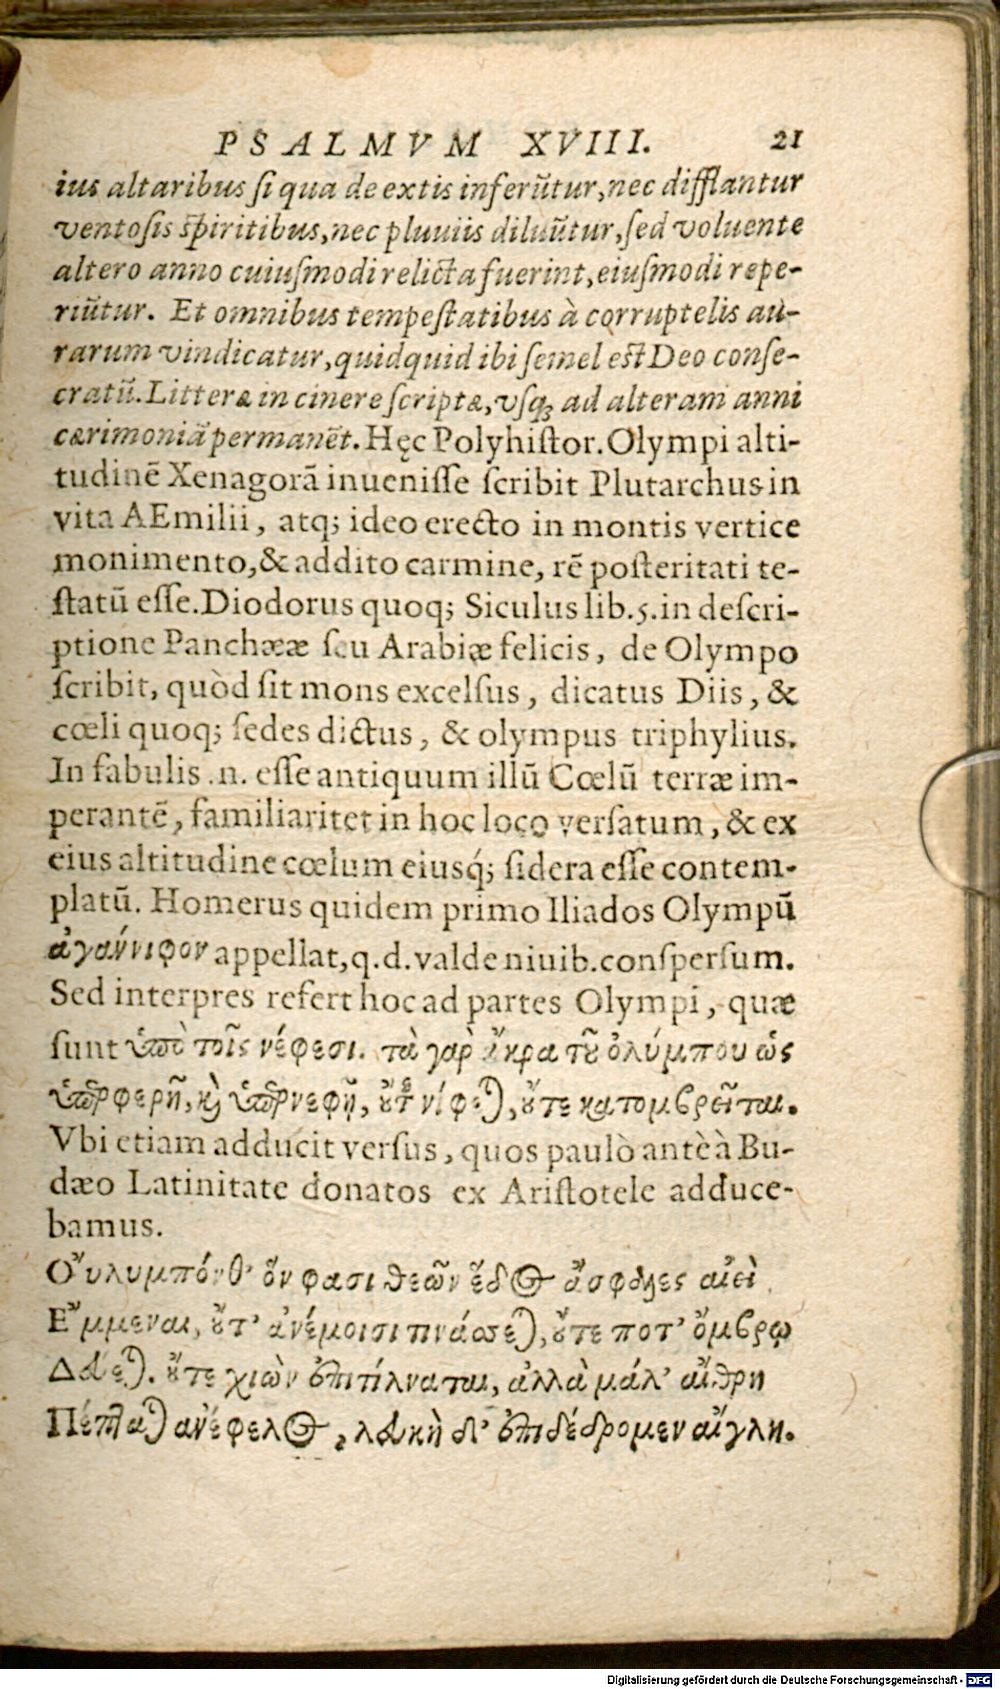 PSALMVM XVIII. 21
ius altaribus ſi qua de extis inferūtur, nec difflantur
ventoſis ſpiritibus, nec pluuiis diluūtur, ſed voluente
altero anno cuiuſmodi relicta fuerint, eiuſmodi repe-
riūtur. Et omnibus tempeſtatibus à corruptelis au-
rarum vindicatur, quidquid ibi ſemel eſt Deo conſe-
cratū. Litteræ in cinere ſcriptæ, vſq; ad alteram anni
cærimoniā permanēt. Hęc Polyhiſtor. Olympi alti-
tudinē Xenagorā inueniſſe ſcribit Plutarchus in
vita AEmilii, atq; ideo erecto in montis vertice
monimento, & addito carmine, rē poſteritati te-
ſtatū eſſe. Diodorus quoq; Siculus lib. 5. in deſcri-
ptione Panchææ ſeu Arabiæ felicis, de Olympo
ſcribit, quòd ſit mons excelſus, dicatus Diis, &
cœli quoq; ſedes dictus, & olympus triphylius.
In fabulis .n. eſſe antiquum illū Cœlū terræ im-
perantē, familiaritet in hoc loco verſatum, & ex
eius altitudine cœlum eiusq́; ſidera eſſe contem-
platū. Homerus quidem primo Iliados Olympū
ἀγάννιφον appellat, q. d. valde niuib. conſperſum.
Sed interpres refert hoc ad partes Olympi, quæ
ſunt ὑπὸ τοῖς νέφεσι. τὰ γὰρ ἄκρα τοῦ ὀλύμπου ὡς
ὑπερφερῆ, καὶ ὑπερνεφῆ, οὔτε νίφεται, οὔτε κατομβρεῖται.
Vbi etiam adducit verſus, quos paulò antè à Bu-
dæo Latinitate donatos ex Ariſtotele adduce-
bamus.
Οὔλυμπόνθ' ὅν φασι θεῶν ἕδος ἀσφαλες αἰεὶ
Εμμεναι, οὔτ' ἀνέμοισι τινάσσεται, οὔτε ποτ' ὄμβρῳ
Δεύεται. οὔτε χιὼν ἐπιπίλναται, ἀλλὰ μάλ' αἴθρη
Πέπταται ἀνέφελος, λευκὴ δ' ἐπιδέδρομεν αἴγλη.
Digitalisierung gefördert durch die Deutsche Forschungsgemeinschaft - DFG